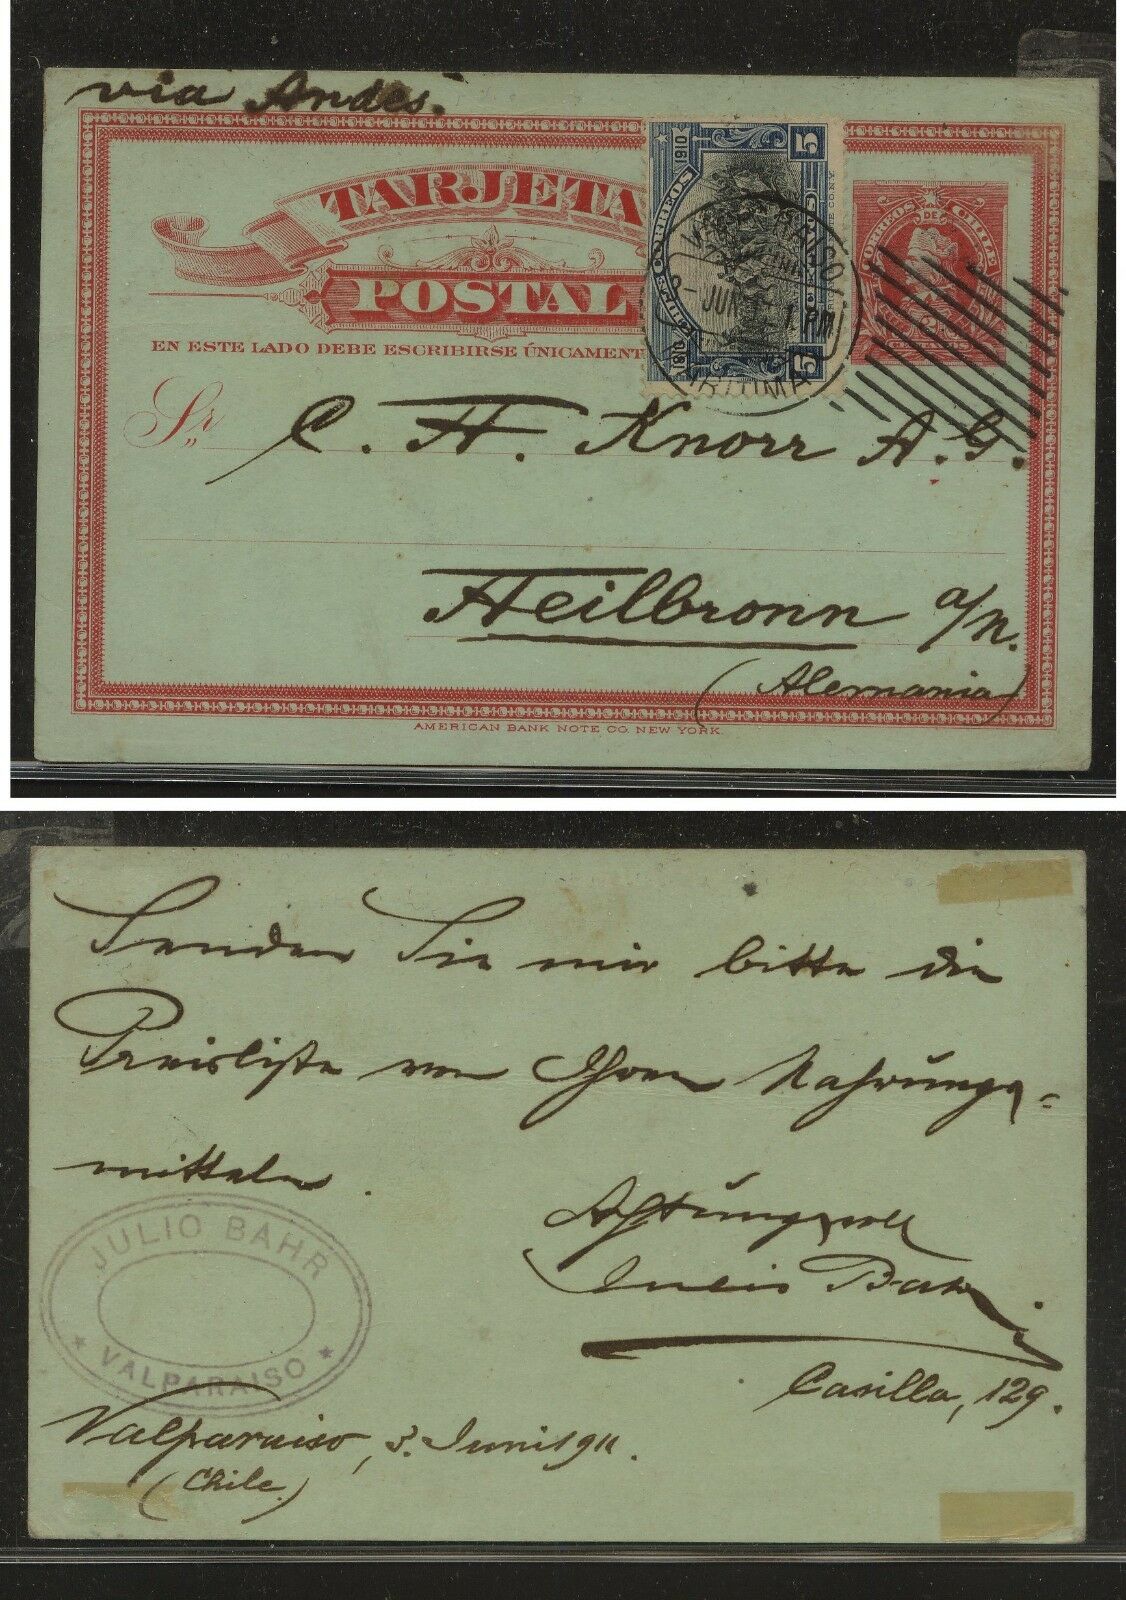 via Andes.
TARJETA
POSTAL
EN ESTE LADO DEBE ESCRIBIRSE ÚNICAMENT
1810 CORREOS 1910
5 CENTAVOS 5
VALPARAISO
JUN 1 PM
MARITIMA
CORREOS DE CHILE
2
CENTAVOS
Sr.
C. H. Knorr A. G.
Heilbronn a/N.
(Alemania)
AMERICAN BANK NOTE CO. NEW YORK.
Senden Sie mir bitte die
Preisliste von Ihren Nahrungs=
mitteln.
Achtungsvoll
Julio Bahr
JULIO BAHR
* VALPARAISO *
Casilla, 129.
Valparaiso, 3. Juni 1911.
(Chile.)